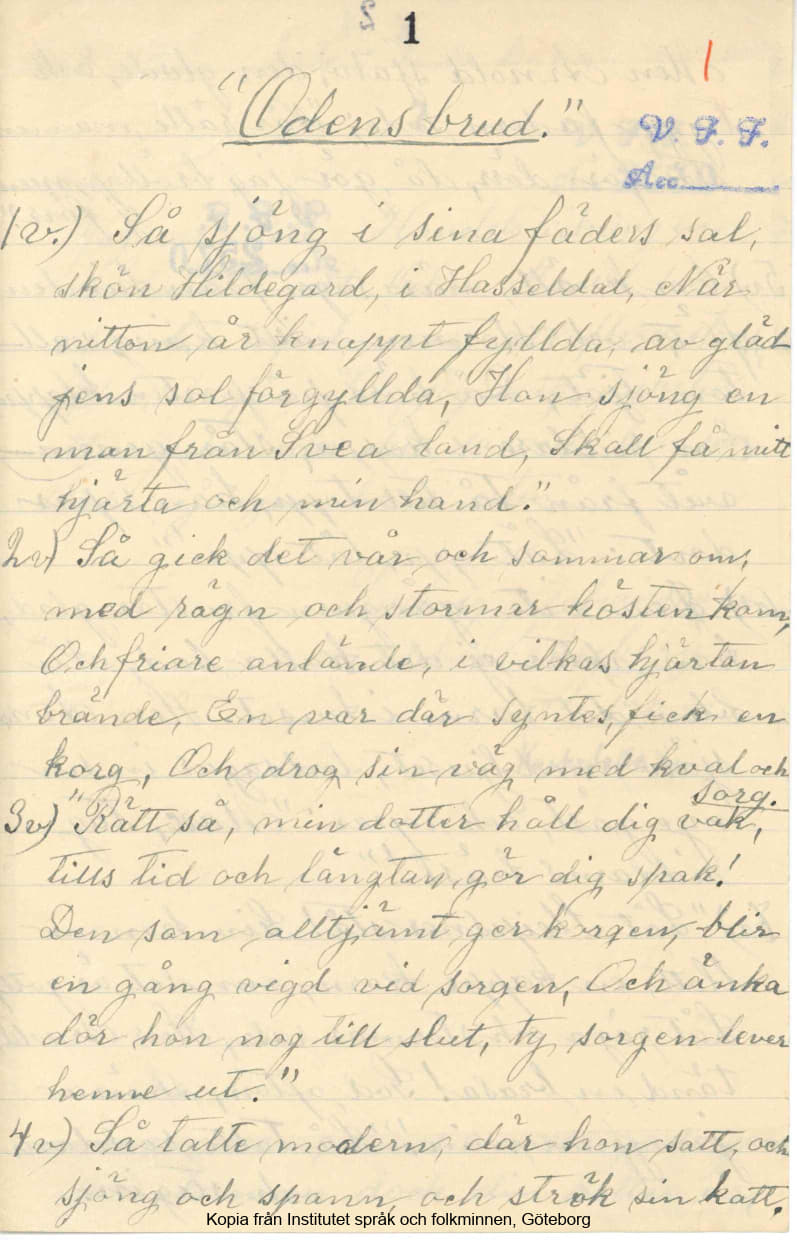 1
1
"Odens brud."
V. F. F.
Acc
1v.) Så sjöng i sina fäders sal,
skön Hildegard, i Hasseldal, När
nitton år knappt fyllda, av gläd
jens sol förgyllda, Hon sjöng en
man från Svea land, Skall få mitt
hjärta och min hand."
2v) Så gick det vår och sommar om,
med rägn och stormar hösten kom,
Och friare anlände, i vilkas hjärtan
brände, En var där syntes, fick en
korg, Och drog sin väg med kval och
sorg.
3v) "Rätt så, min dotter håll dig vak,
tills tid och längtan gör dig spak!
Den som alltjämt ger korgen, blir
en gång vigd vid sorgen, Och änka
dör hon nog till slut, ty sorgen lever
henne ut."
4v) Så talte modern, där hon satt, och
sjöng och spann, och strök sin katt.
Kopia från Institutet språk och folkminnen, Göteborg